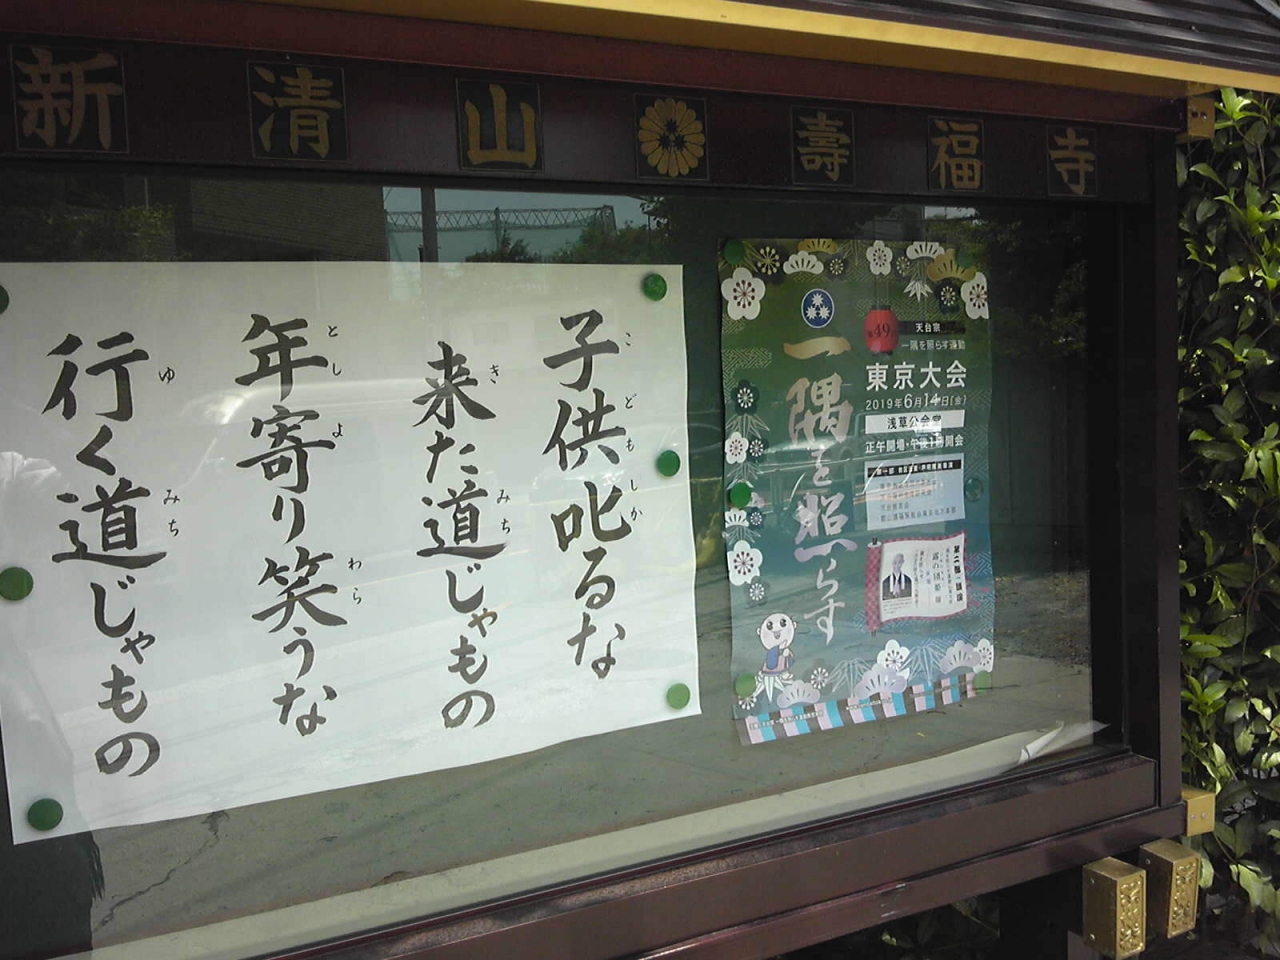 新清山 壽福寺
子供叱るな
来た道じゃもの
年寄り笑うな
行く道じゃもの
こども しか
き みち
とし よ わら
ゆ みち
一隅を照らす
49
天台宗
一隅を照らす運動
東京大会
2019年6月14日(金)
浅草公会堂
正午開場・午後1時開会